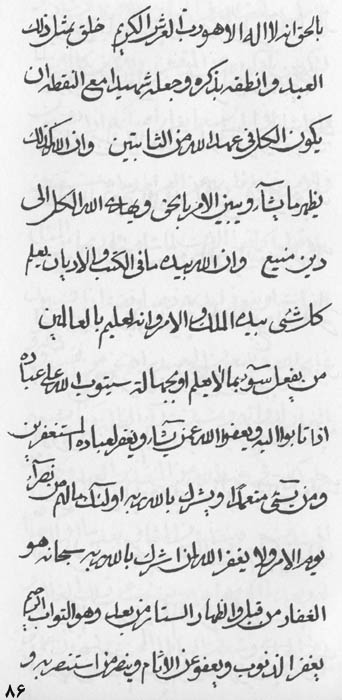 بالحق انه لا اله الا هو رب العرش الكريم خلق بمثل ذلك
العبد وانطقه بذكره وجعله شهيدا مع النقطة ان
يكون الكل في عهد الله من الثابتين وان الله كذلك
يظهر ما يشآء ويبين الامر بالحق ويهدى الله الكل الى
دين منيع وان الله بيده ما في الكتب والاديان يعلم
كل شئ بيده الملك والامر وانه لعليم بالعالمين
من يفعل سوء بما لا يعلم او بجهالة سيتوب الله على عباده
اذا تابوا اليه ويعفو الله عمن يشاء ويغفر لعباده المستغفرين
ومن متعمدا ويشرك بالله ربه اولئك ما لهم من نصرآء
يوم الامر ولا يغفر الله لمن اشرك بالله ربه سبحانه هو
الغفار من قبل والظهار الستار من بعد وهو التواب الرحيم
يغفر الذنوب ويعفو عن الاثام وينصر من استنصر به و
٨۶